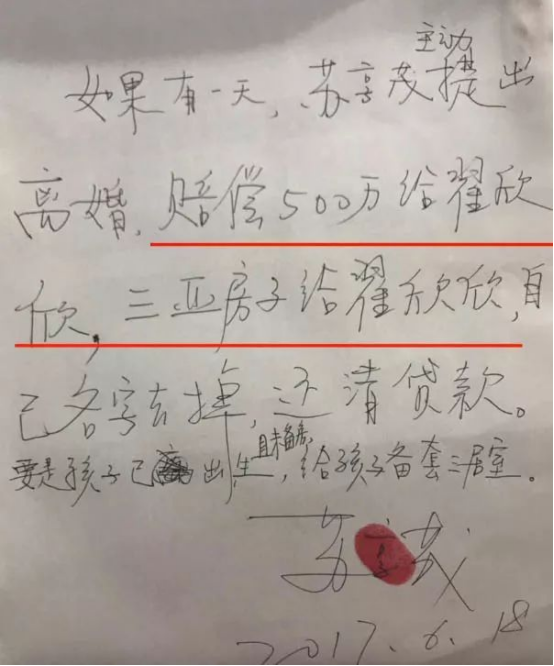 主动
如果有一天,苏享茂提出
离婚,赔偿500万给翟欣
欣,三亚房子给翟欣欣,自
己名字去掉,还清贷款。
要是孩子已出生,且未备房,给孩子备套三居室。
苏享茂
2017.6.18